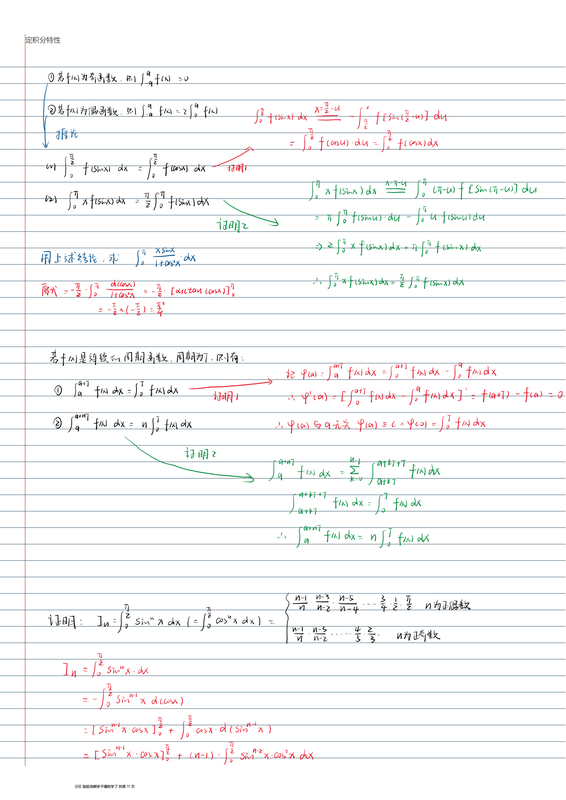 定积分特性
① 若f(x)为奇函数, 则 ∫_{-a}^{a} f(x) = 0
② 若f(x)为偶函数, 则 ∫_{-a}^{a} f(x) = 2∫_0^a f(x)
推论
(1) ∫_0^{π/2} f(sinx) dx = ∫_0^{π/2} f(cosx) dx
证明1
∫_0^{π/2} f(sinx) dx x=π/2-u = -∫_{π/2}^0 f[sin(π/2-u)] du
= ∫_0^{π/2} f(cosu) du = ∫_0^{π/2} f(cosx) dx
(2) ∫_0^π x f(sinx) dx = π/2 ∫_0^π f(sinx) dx
证明2
∫_0^π x f(sinx) dx x=π-u = ∫_0^π (π-u) f[sin(π-u)] du
= π∫_0^π f(sinu)·du - ∫_0^π u f(sinu) du
⇒ 2∫_0^π x f(sinx) dx = π∫_0^π f(sinx) dx
∴ ∫_0^π x f(sinx) dx = π/2 ∫_0^π f(sinx) dx
用上述结论, 求 ∫_0^π xsinx/(1+cos²x) dx
原式 = -π/2·∫_0^π d(cosx)/(1+cos²x) = -π/2·[arctan(cosx)]_0^π
= -π/2×(-π/2) = π²/4
若f(x)是连续的周期函数, 周期为T, 则有:
① ∫_a^{a+T} f(x) dx = ∫_0^T f(x) dx
证明1
记 φ(a) = ∫_a^{a+T} f(x) dx = ∫_0^{a+T} f(x) dx - ∫_0^a f(x) dx
∴ φ'(a) = [∫_0^{a+T} f(x) dx - ∫_0^a f(x) dx]' = f(a+T) - f(a) = 0
∴ φ(a) 与 a 无关 φ(a) = c = φ(0) = ∫_0^T f(x) dx
② ∫_a^{a+nT} f(x) dx = n∫_0^T f(x) dx
证明2
∫_a^{a+nT} f(x) dx = Σ_{k=0}^{n-1} ∫_{a+kT}^{a+kT+T} f(x) dx
∫_{a+kT}^{a+kT+T} f(x) dx = ∫_0^T f(x) dx
∴ ∫_a^{a+nT} f(x) dx = n∫_0^T f(x) dx
证明: I_n = ∫_0^{π/2} sin^n x dx (= ∫_0^{π/2} cos^n x dx) =
(n-1)/n · (n-3)/(n-2) · (n-5)/(n-4) ···· 3/4 · 1/2 · π/2 n为正偶数
(n-1)/n · (n-3)/(n-2) ····· 4/5 · 2/3 · n为正奇数
I_n = ∫_0^{π/2} sin^n x·dx
= -∫_0^{π/2} sin^{n-1} x d(cosx)
= [sin^{n-1} x·cosx]_0^{π/2} + ∫_0^{π/2} cosx·d(sin^{n-1} x)
= [sin^{n-1} x·cosx]_0^{π/2} + (n-1)·∫_0^{π/2} sin^{n-2} x·cos²x dx